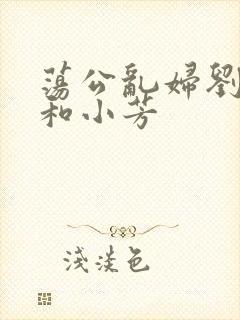 蕩公亂婦劉
和小芳
淺淡色